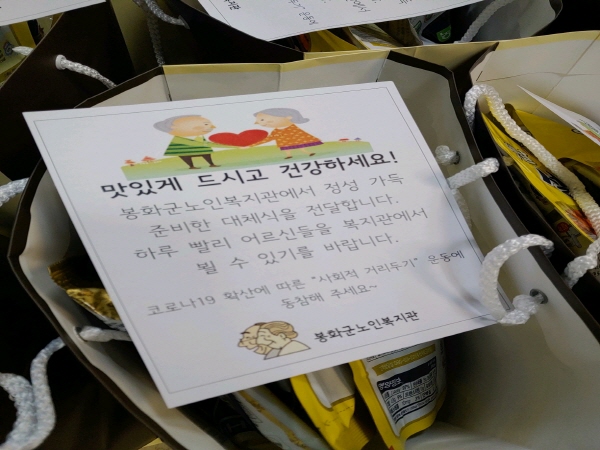 맛있게 드시고 건강하세요!
봉화군노인복지관에서 정성 가득
준비한 대체식을 전달합니다.
하루 빨리 어르신들을 복지관에서
뵐 수 있기를 바랍니다.
코로나19 확산에 따른 "사회적 거리두기" 운동에
동참해 주세요~
봉화군노인복지관